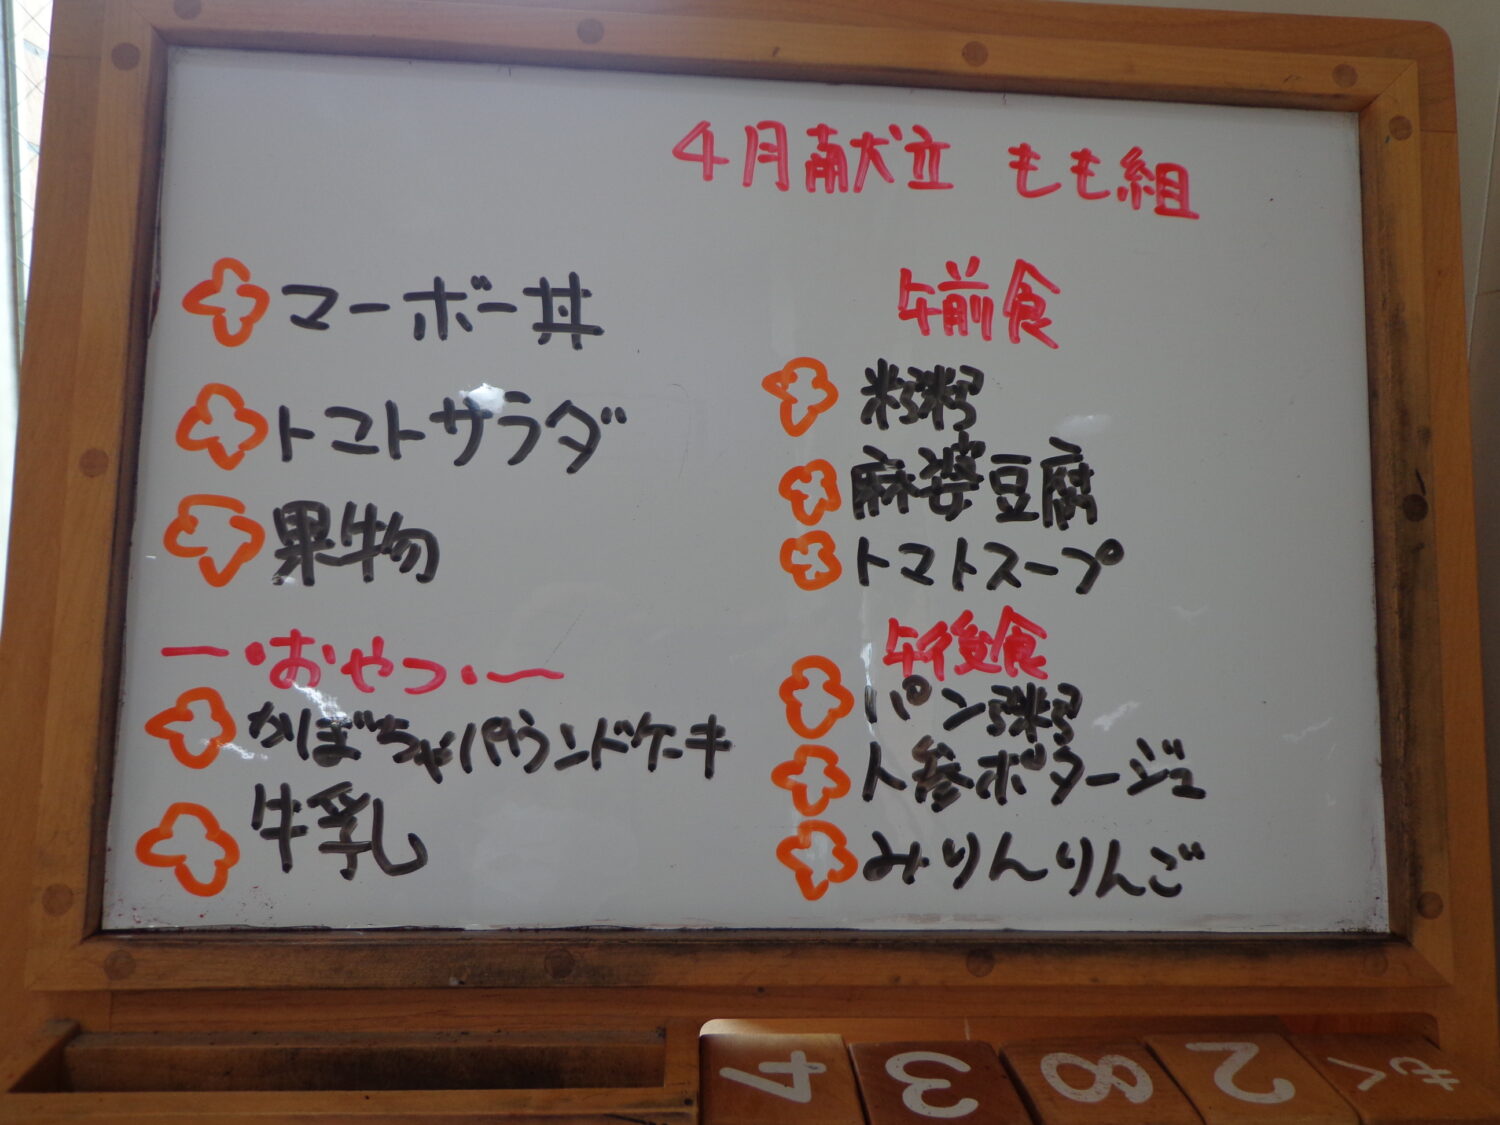 4月献立 もも組
マーボー丼
トマトサラダ
果物
おやつ
かぼちゃパウンドケーキ
牛乳
午前食
粥
麻婆豆腐
トマトスープ
午後食
パン粥
人参ポタージュ
みりんりんご
4 3 8 2 もく